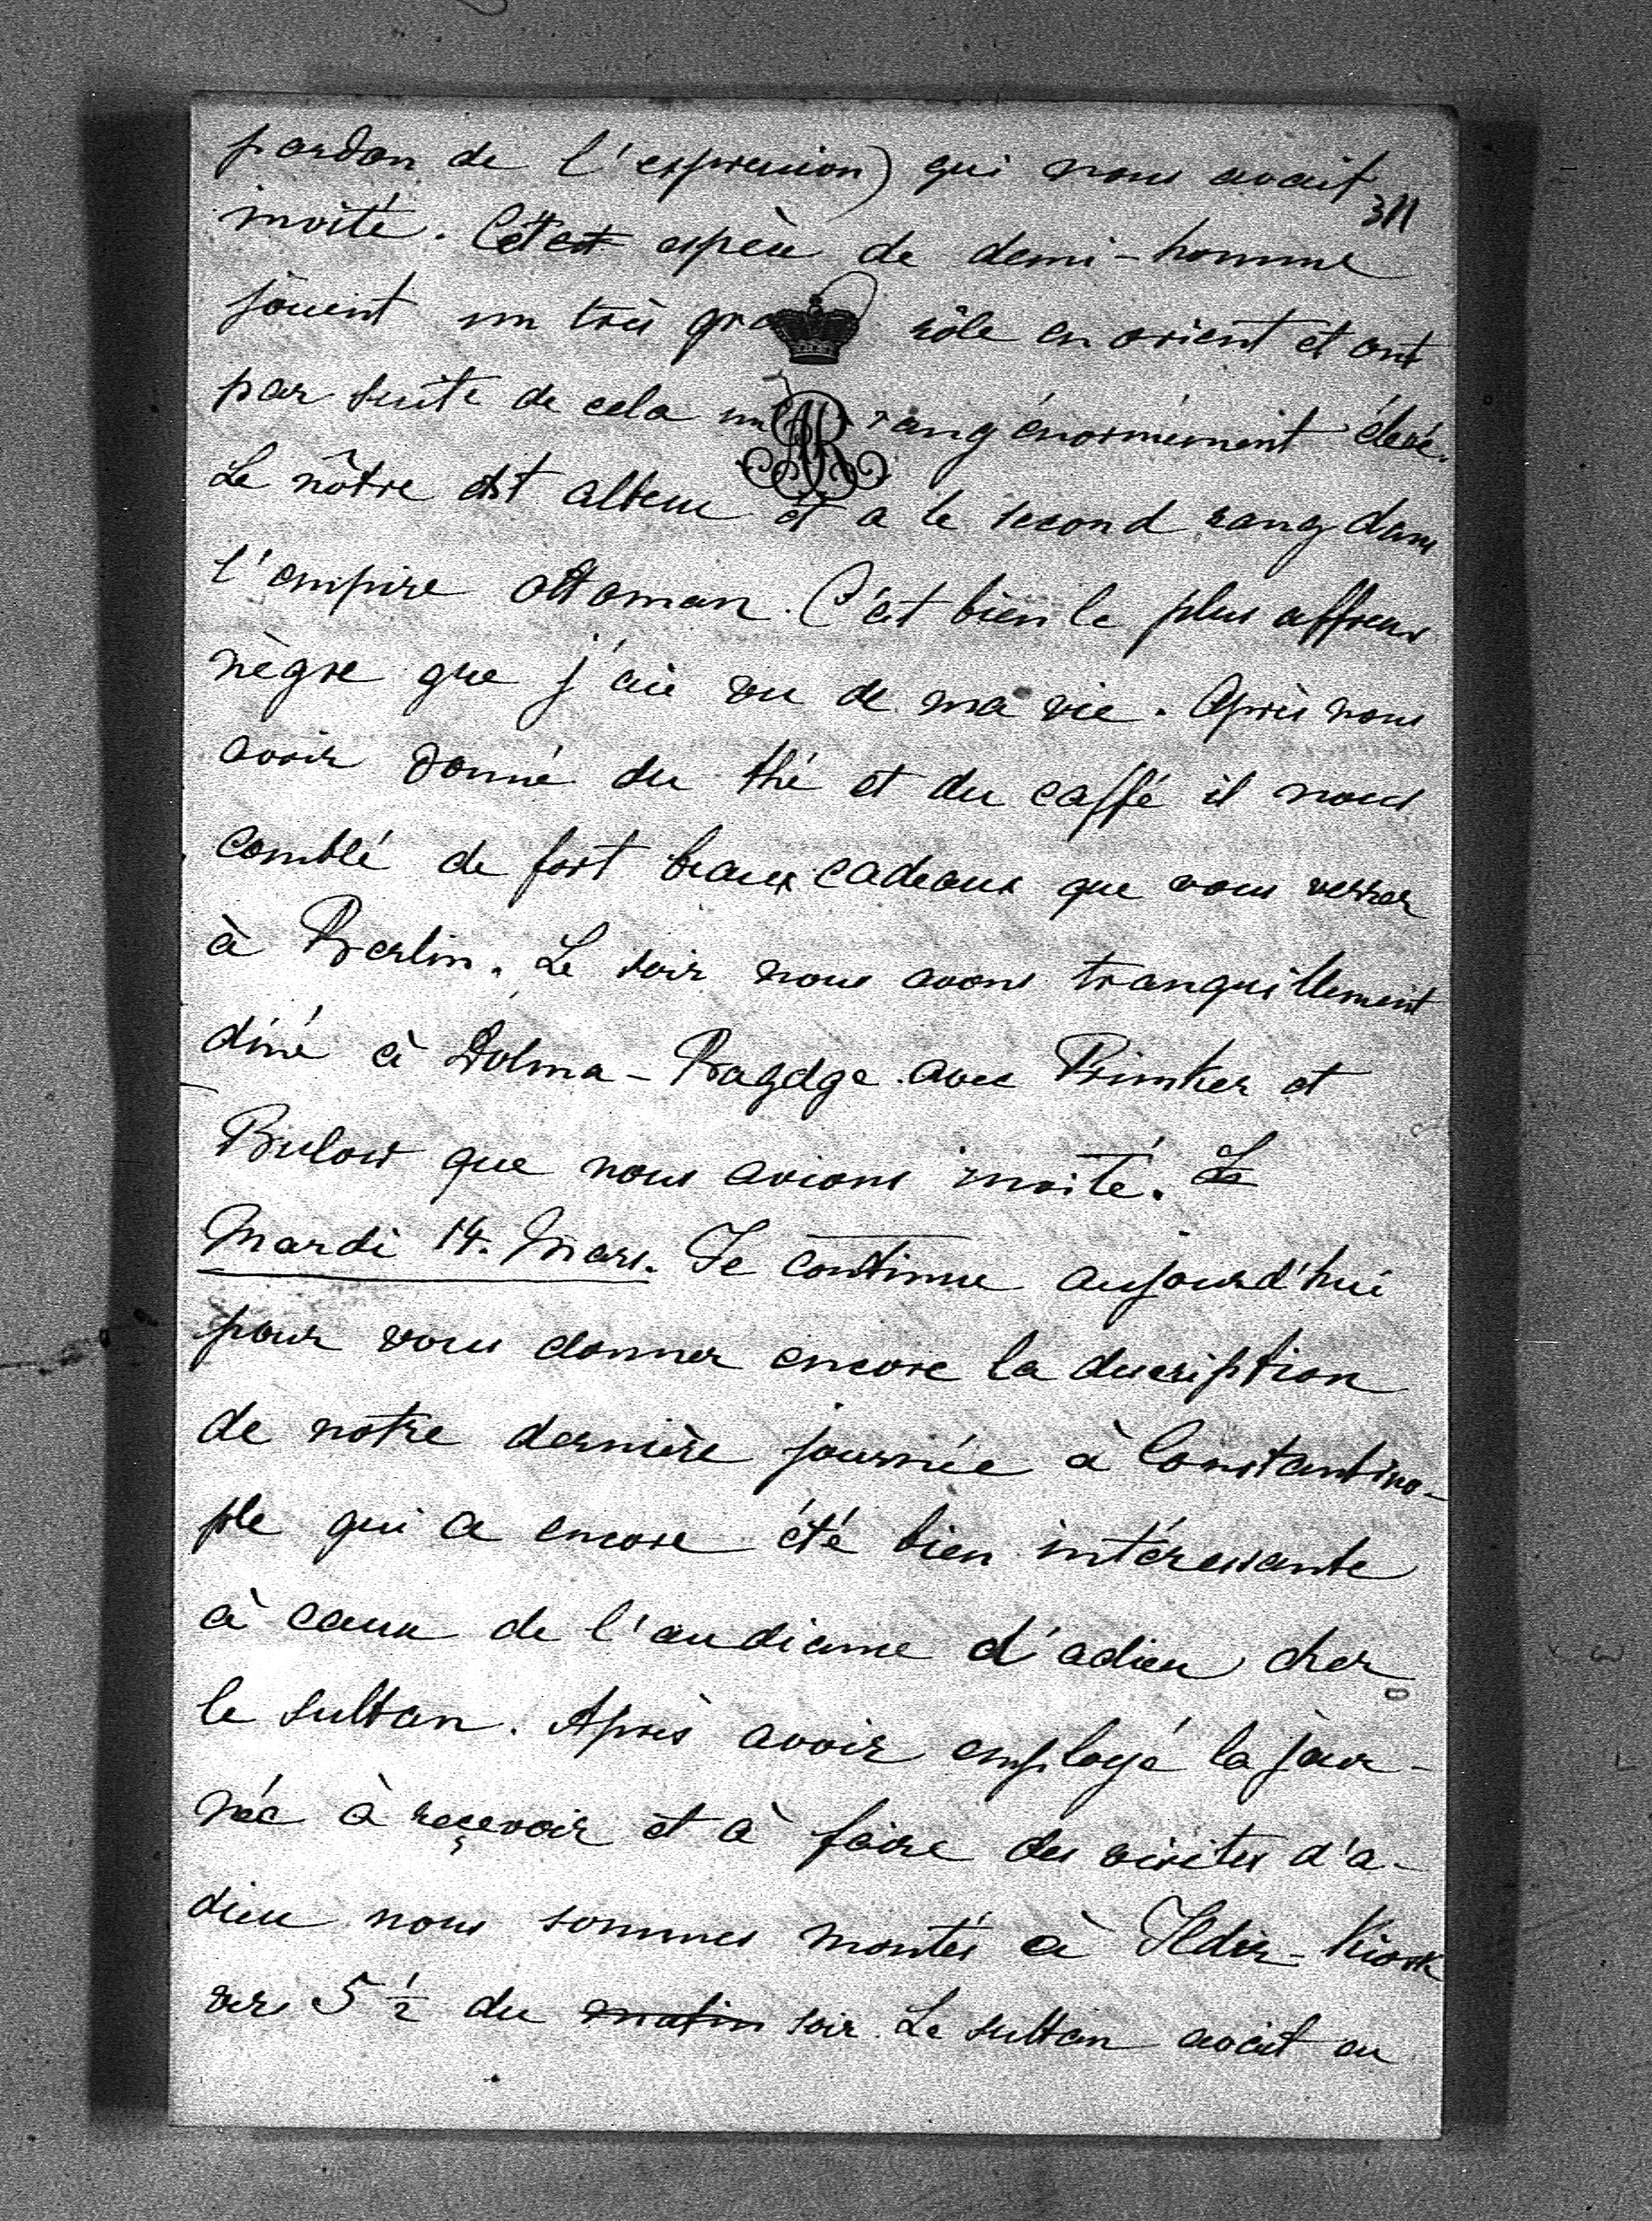 pardon de l'expression) qui nous avait
311
invité. Cet est espèce de demi-homme
jouent un très gra rôle en orient et ont
par suite de cela un rang énormément élevé.
Le nôtre est et a le second rang dans
l'empire ottoman. C'est bien le plus affreux
nègre que j'aie vu de ma vie. Après nous
avoir donné du thé et du caffé il nous
comblé de fort beaux cadeaux que vous verrez
à Berlin. Le soir nous avons tranquillement
diné à Dolma-Bagdge avec et
Bulow que nous avions invité. Le
Mardi 14. Mars. Je continue aujourd'hui
pour vous donner encore la description
de notre dernière journée à Constantino-
ple qui a encore été bien intéressante
à caux de l'audiance d'adieu chez
le sultan. Après avoir employé la jour-
née à reçevoir et à faire des visites d'a-
dieu nous sommes montés à Ildiz-Kiosk
vers 5 ½ du matin soir. Le sultan avait eu